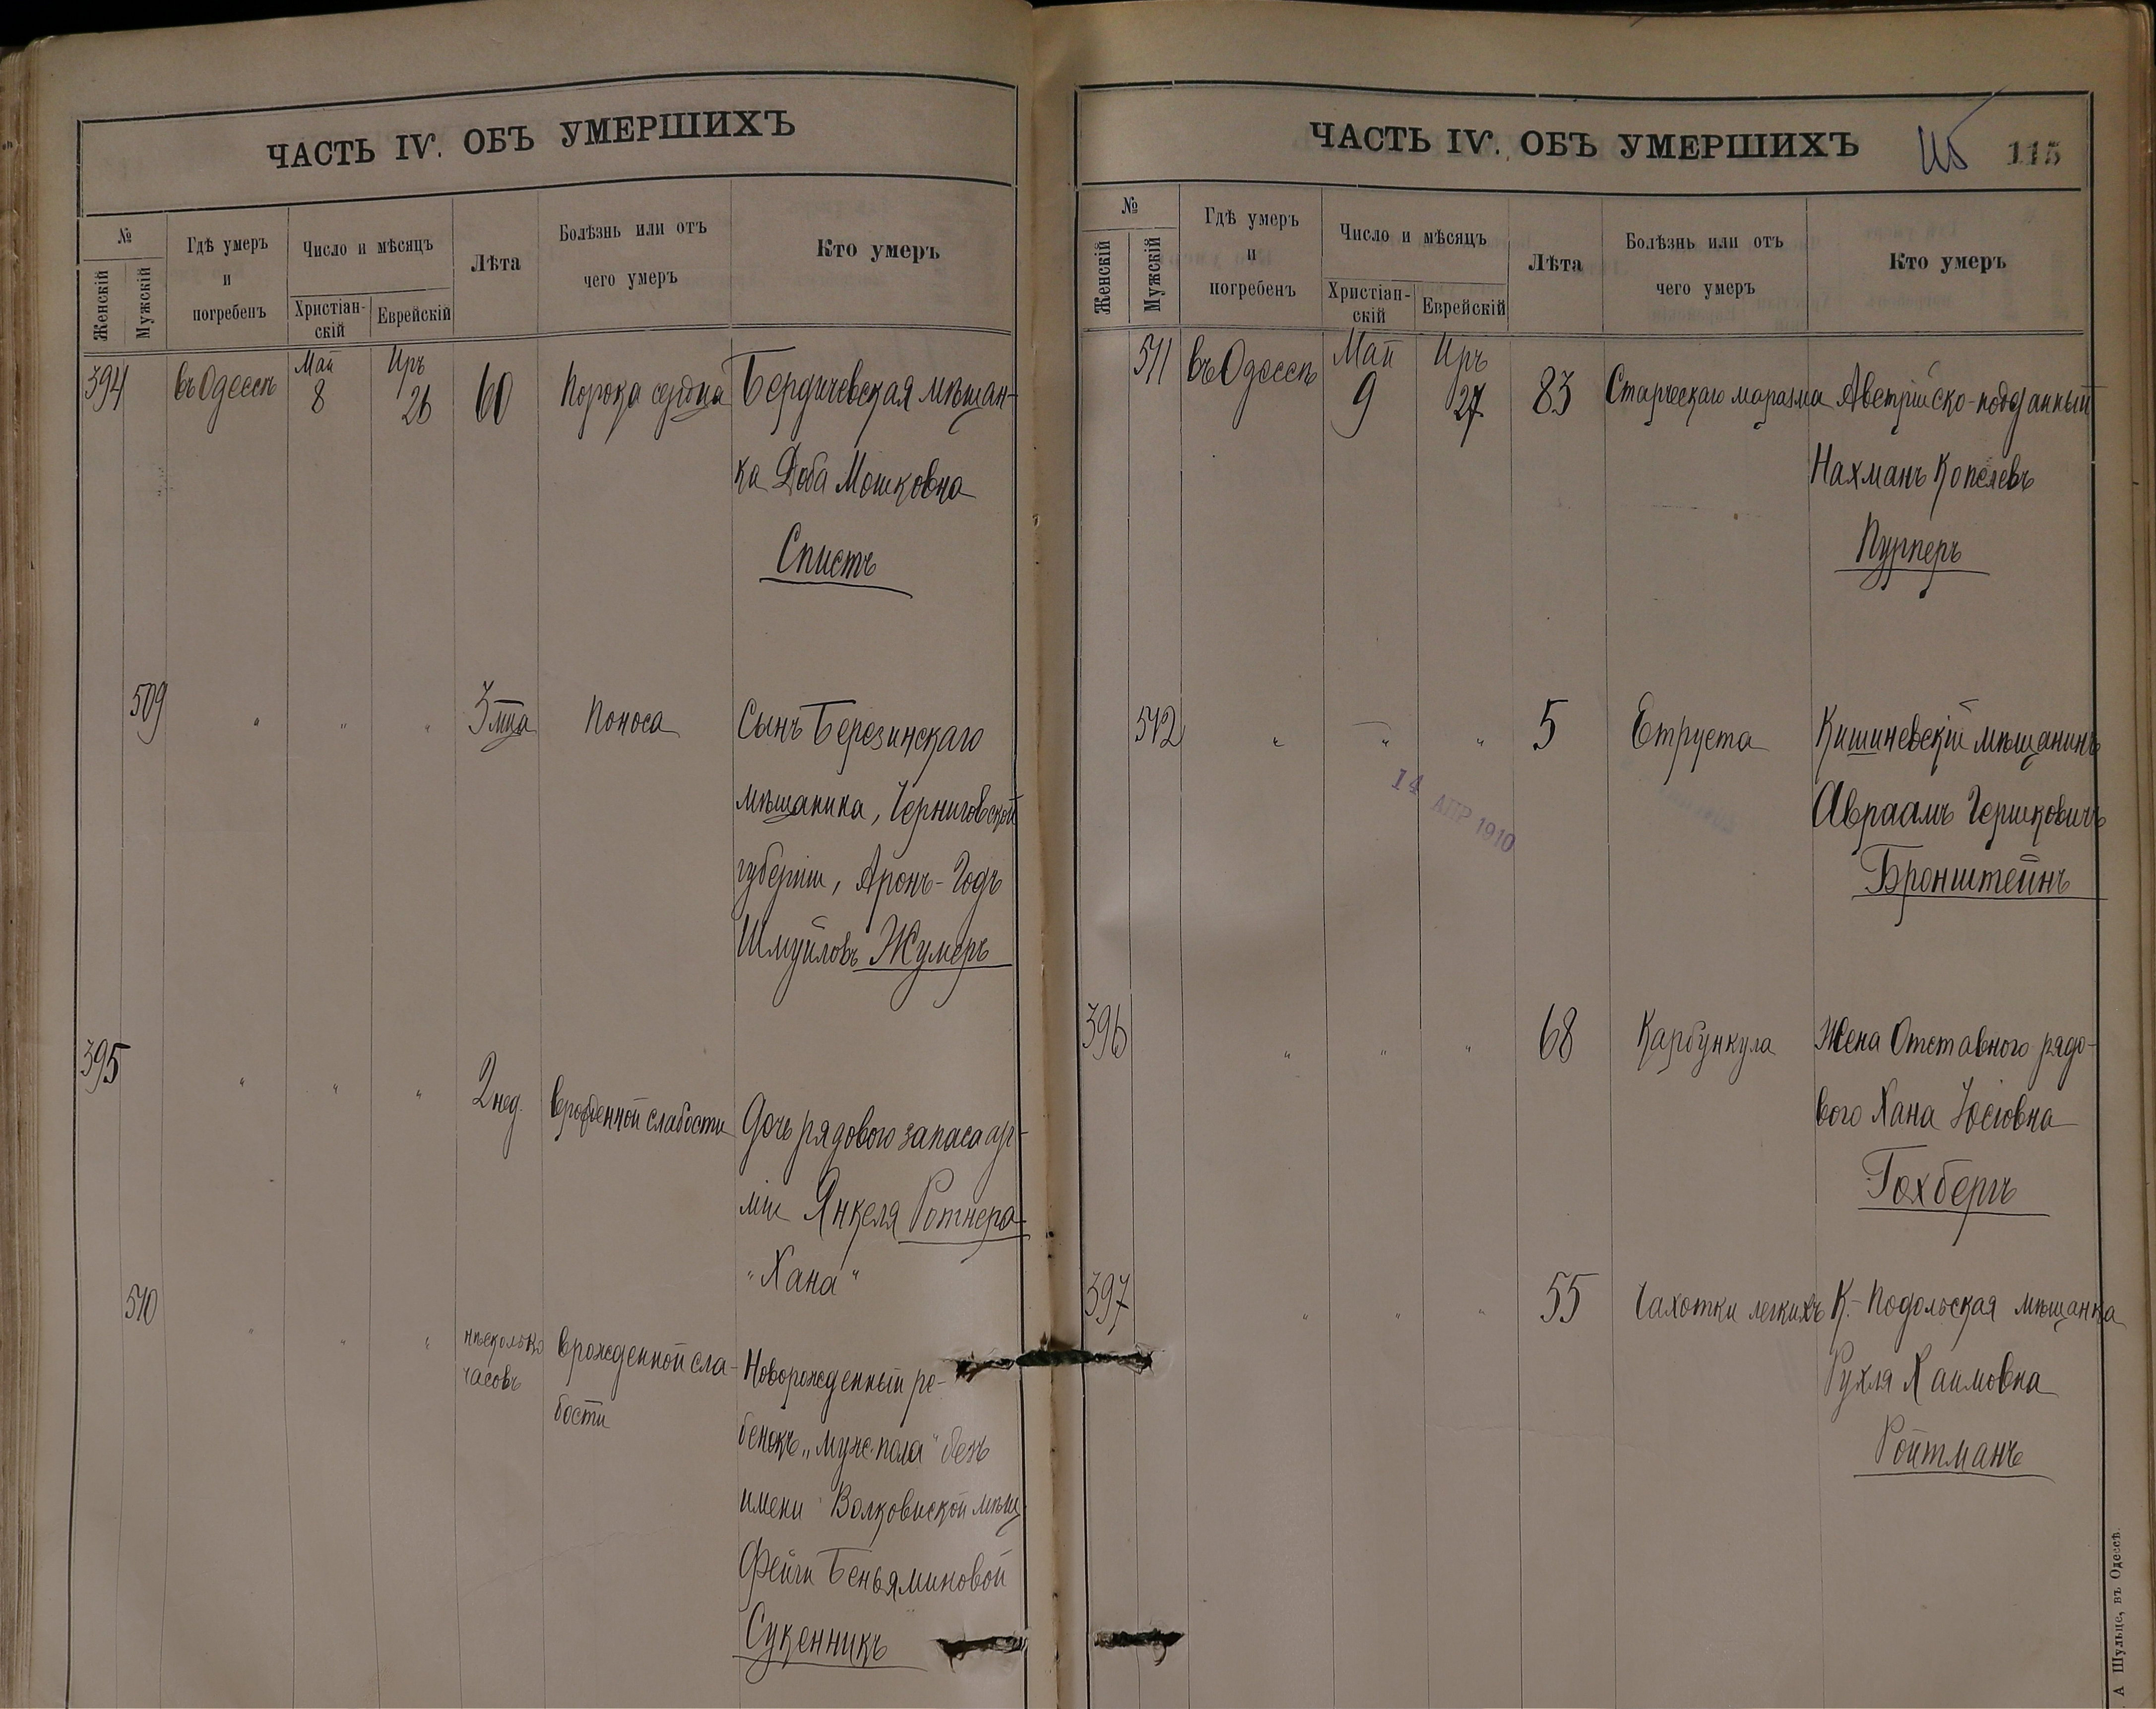 ЧАСТЬ IV. ОБЪ УМЕРШИХЪ
№
Женскій
Мужскій
Гдѣ умеръ
и
погребенъ
Число и мѣсяцъ
Христіан-
скій
Еврейскій
Лѣта
Болѣзнь или отъ
чего умеръ
Кто умеръ
394 въ Одессѣ Май 8 Иръ 26 60 Порока сердца Бердичевская мѣщан-
ка Доба Мошковна
Спистъ
509 " " " 3 мца Поноса Сынъ Березинскаго
мѣщанина, Черниговской
губерніи, Аронъ-Годъ
Шмуйловъ Жумеръ
395 " " " 2 нед. врожденной слабости Дочь рядового запаса ар-
міи Янкеля Ротнера
"Хана"
510 " " " нѣсколько
часовъ
врожденной сла-
бости
Новорожденный ре-
бенокъ "муж. пола" безъ
имени Волковиской мѣщ.
Фейги Беньяминовой
Сукенникъ
ЧАСТЬ IV. ОБЪ УМЕРШИХЪ
115 115
№
Женскій
Мужскій
Гдѣ умеръ
и
погребенъ
Число и мѣсяцъ
Христіан-
скій
Еврейскій
Лѣта
Болѣзнь или отъ
чего умеръ
Кто умеръ
511 въ Одессѣ Май 9 Иръ 27 83 Старческаго маразма Австрійско-подданный
Нахманъ Копелевъ
512 " " " 5 Кишиневскій мѣщанинъ
Авраамъ Гершковичъ
Бронштейнъ
14 АПР 1910
396 " " " 68 Карбункула Жена Отставного рядо-
вого Хана Іосіовна
Гохбергъ
397 " " " 55 Чахотки легкихъ К.-Подольская мѣщанка
Рухля Хаимовна
Ройтманъ
А Шульце, въ Одессѣ.